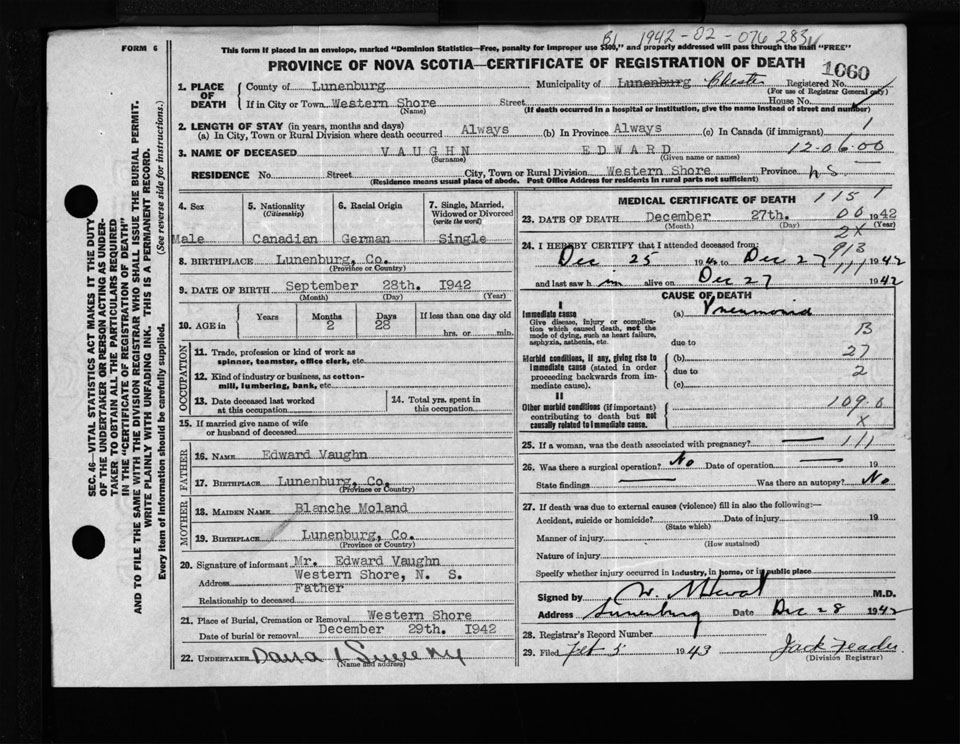 B1 1942-02-076 283
FORM 6
This form if placed in an envelope, marked "Dominion Statistics—Free, penalty for improper use $300," and properly addressed will pass through the mail "FREE"
PROVINCE OF NOVA SCOTIA—CERTIFICATE OF REGISTRATION OF DEATH
1060
1. PLACE OF DEATH
County of Lunenburg Municipality of Lunenburg Chester Registered No.
(For use of Registrar General only)
If in City or Town Western Shore Street House No.
(Name) (If death occurred in a hospital or institution, give the name instead of street and number)
2. LENGTH OF STAY (in years, months and days)
(a) In City, Town or Rural Division where death occurred Always (b) In Province Always (c) In Canada (if immigrant) 1
3. NAME OF DECEASED VAUGHN EDWARD 12-06-00
(Surname) (Given name or names)
RESIDENCE No. Street City, Town or Rural Division Western Shore Province N S.
(Residence means usual place of abode. Post Office Address for residents in rural parts not sufficient)
4. Sex
Male
5. Nationality
(Citizenship)
Canadian
6. Racial Origin
German
7. Single, Married, Widowed or Divorced
(write the word)
Single
8. BIRTHPLACE Lunenburg, Co.
(Province or Country)
9. DATE OF BIRTH September 28th. 1942
(Month) (Day) (Year)
10. AGE in
Years Months Days If less than one day old
2 28 hrs. or min.
OCCUPATION
11. Trade, profession or kind of work as
spinner, teamster, office clerk, etc.
12. Kind of industry or business, as cotton-
mill, lumbering, bank, etc.
13. Date deceased last worked
at this occupation
14. Total yrs. spent in
this occupation
15. If married give name of wife
or husband of deceased
FATHER
16. NAME Edward Vaughn
17. BIRTHPLACE Lunenburg, Co.
(Province or Country)
MOTHER
18. MAIDEN NAME Blanche Moland
19. BIRTHPLACE Lunenburg, Co.
(Province or Country)
20. Signature of informant Mr. Edward Vaughn
Address Western Shore, N. S.
Relationship to deceased Father
21. Place of Burial, Cremation or Removal Western Shore
Date of burial or removal December 29th. 1942
22. UNDERTAKER
(Name and address)
MEDICAL CERTIFICATE OF DEATH 115 1
23. DATE OF DEATH December 27th. 00 1942
(Month) (Day) (Year)
2X
24. I HEREBY CERTIFY that I attended deceased from: 913
Dec 25 1942 to Dec 27 111 1942
and last saw him alive on Dec 27 1942
CAUSE OF DEATH
I
Immediate cause
Give disease, injury or complication which caused death, not the mode of dying, such as heart failure, asphyxia, asthenia, etc.
(a) Pneumonia
B
due to
Morbid conditions, if any, giving rise to immediate cause (stated in order proceeding backwards from immediate cause).
(b) 27
due to 2
(c)
II
Other morbid conditions (if important) contributing to death but not causally related to immediate cause.
109.0
X
25. If a woman, was the death associated with pregnancy? — 111
26. Was there a surgical operation? No Date of operation — 19
State findings — Was there an autopsy? No
27. If death was due to external causes (violence) fill in also the following:—
Accident, suicide or homicide? Date of injury 19
(State which)
Manner of injury
(How sustained)
Nature of injury
Specify whether injury occurred in industry, in home, or in public place
Signed by M.D.
Address Lunenburg Date Dec 28 1942
28. Registrar's Record Number
29. Filed Feb 5 1943
(Division Registrar)
SEC. 46—VITAL STATISTICS ACT MAKES IT THE DUTY
OF THE UNDERTAKER OR PERSON ACTING AS UNDER-
TAKER TO OBTAIN ALL THE PARTICULARS REQUIRED
IN THE "CERTIFICATE OF REGISTRATION OF DEATH"
AND TO FILE THE SAME WITH THE DIVISION REGISTRAR WHO SHALL ISSUE THE BURIAL PERMIT.
WRITE PLAINLY WITH UNFADING INK. THIS IS A PERMANENT RECORD.
Every item of information should be carefully supplied. (See reverse side for instructions.)